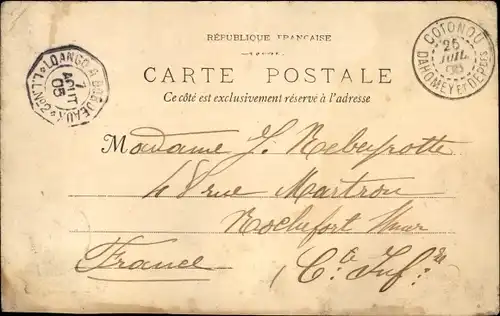 RÉPUBLIQUE FRANÇAISE
CARTE POSTALE
Ce côté est exclusivement réservé à l'adresse
LOANGO A BORDEAUX
7
AOUT
05
L.L. Nº2
COTONOU
25
JUIL
05
DAHOMEY ET DÉPces
Madame J. Rebeyrotte
48 rue Martrou
Rochefort s/mer
France
(Cte Infre